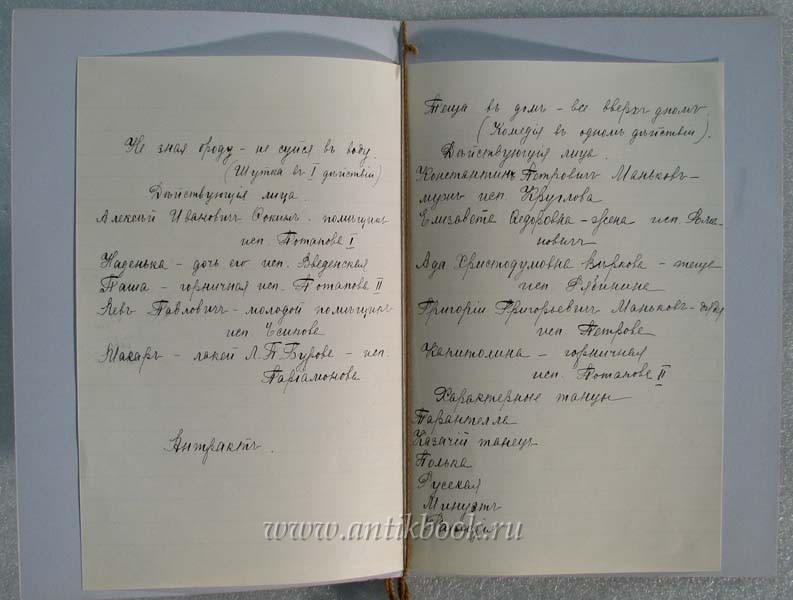 Не зная броду – не суйся въ воду.
(Шутка въ I дѣйствіи)
Дѣйствующія лица.
Алексѣй Ивановичъ Фокинъ – помѣщикъ
исп. Потапова I
Наденька – дочь его исп. Введенская
Паша – горничная исп. Потапова II
Левъ Павловичъ – молодой помѣщикъ
исп. Есипова
Макаръ – лакей Л. П. Бурова – исп.
Парѳамонова
Антрактъ.
Теща въ домъ – все вверхъ дномъ.
(Комедія въ одномъ дѣйствіи).
Дѣйствующія лица.
Константинъ Петровичъ Маньковъ –
мужъ исп. Круглова
Елизавета Ѳедоровна – жена исп.
Ада Христодумовна – теща
исп. Рябинина
Григорій Григорьевичъ Маньковъ – дядя
исп. Петрова
Капитолина – горничная
исп. Потапова II
Характерные танцы
Тарантелла
Казачій танецъ
Полька
Русская
Минуэтъ
www.antikbook.ru